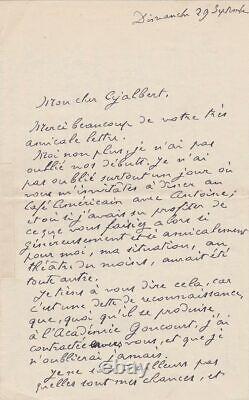 Dimanche 29 Septembre
Mon cher Ajalbert,
Merci beaucoup de votre très
amicale lettre.
Moi non plus, je n'ai pas
oublié nos débuts. Je n'ai
pas oublié surtout un jour où
vous m'invitâtes à dîner au
Café Américain avec Antoine,
et où si j'avais su profiter de
ce que vous faisiez alors si
généreusement et si amicalement
pour moi, ma situation, au
théâtre du moins, aurait été
toute autre.
Je tiens à vous dire cela, car
c'est une dette de reconnaissance
que, quoi qu'il se produise,
à l'Académie Goncourt, j'ai
contractée envers vous, et que je
n'oublierai jamais.
Je ne sais d'ailleurs pas
quelles sont mes chances, et
ebay